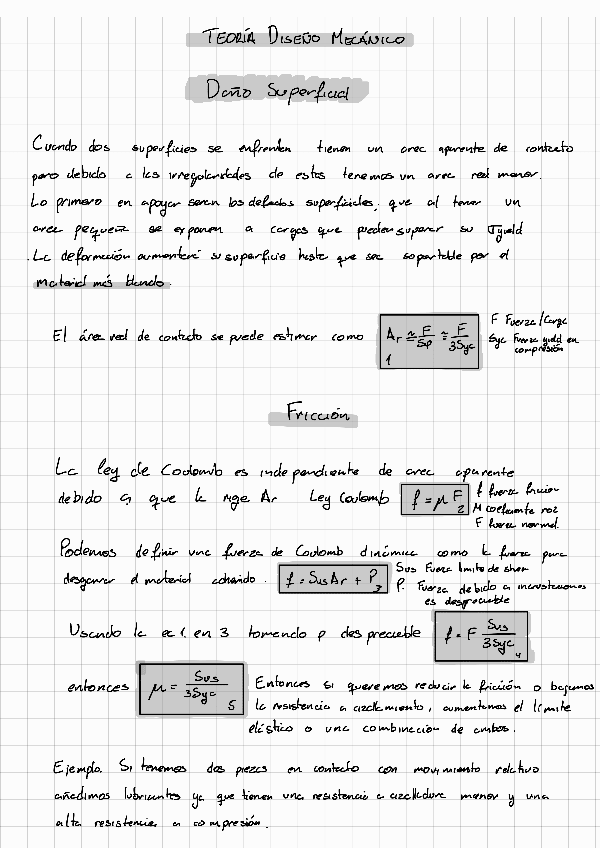 TEORÍA DISEÑO MECÁNICO
Daño Superficial
Cuando dos superficies se enfrentan tienen un area aparente de contacto
pero debido a las irregularidades de estas tenemos un area real menor.
Lo primero en apoyar seran los defectos superficiales, que al tener un
area pequeña se exponen a cargas que pueden superar su σyield
La deformación aumentará su superficie hasta que sea soportable por el
material más blando.
El área real de contacto se puede estimar como Ar ≃ F/Sp ≃ F/3Syc 1
F Fuerza/Carga
Syc Fuerza yield en
compresión
Fricción
La ley de Coulomb es independiente de area aparente
debido a que la rige Ar Ley Coulomb f = μ F 2
f fuerza friccion
μ coeficiente roz
F fuerza normal.
Podemos definir una fuerza de Coulomb dinámica como la fuerza para
desgarrar el material cohesido. f = Sus Ar + P 3
Sus Fuerza limite de shear
P. Fuerza debido a incrustaciones
es despreciable
Usando la ec 1. en 3 tomando p despreciable f = F Sus/3Syc 4
entonces μ = Sus/3Syc 5
Entonces si queremos reducir la fricción o bajamos
la resistencia a cizallamiento, aumentamos el límite
elástico o una combinacion de ambos.
Ejemplo. Si tenemos dos piezas en contacto con movimiento relativo
añadimos lubricantes ya que tienen una resistencia a cizalladura menor y una
alta resistencia a compresión.